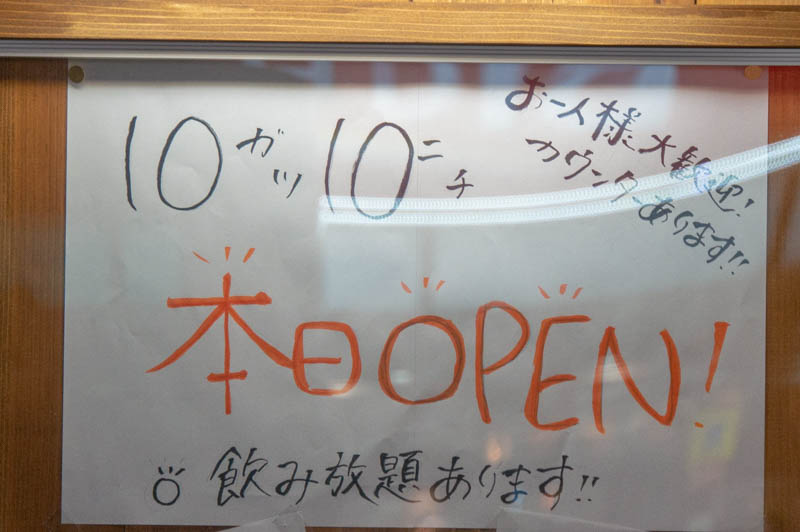 10ガツ10ニチ
お一人様、大歓迎!
カウンターあります!!
本日OPEN!
飲み放題あります!!